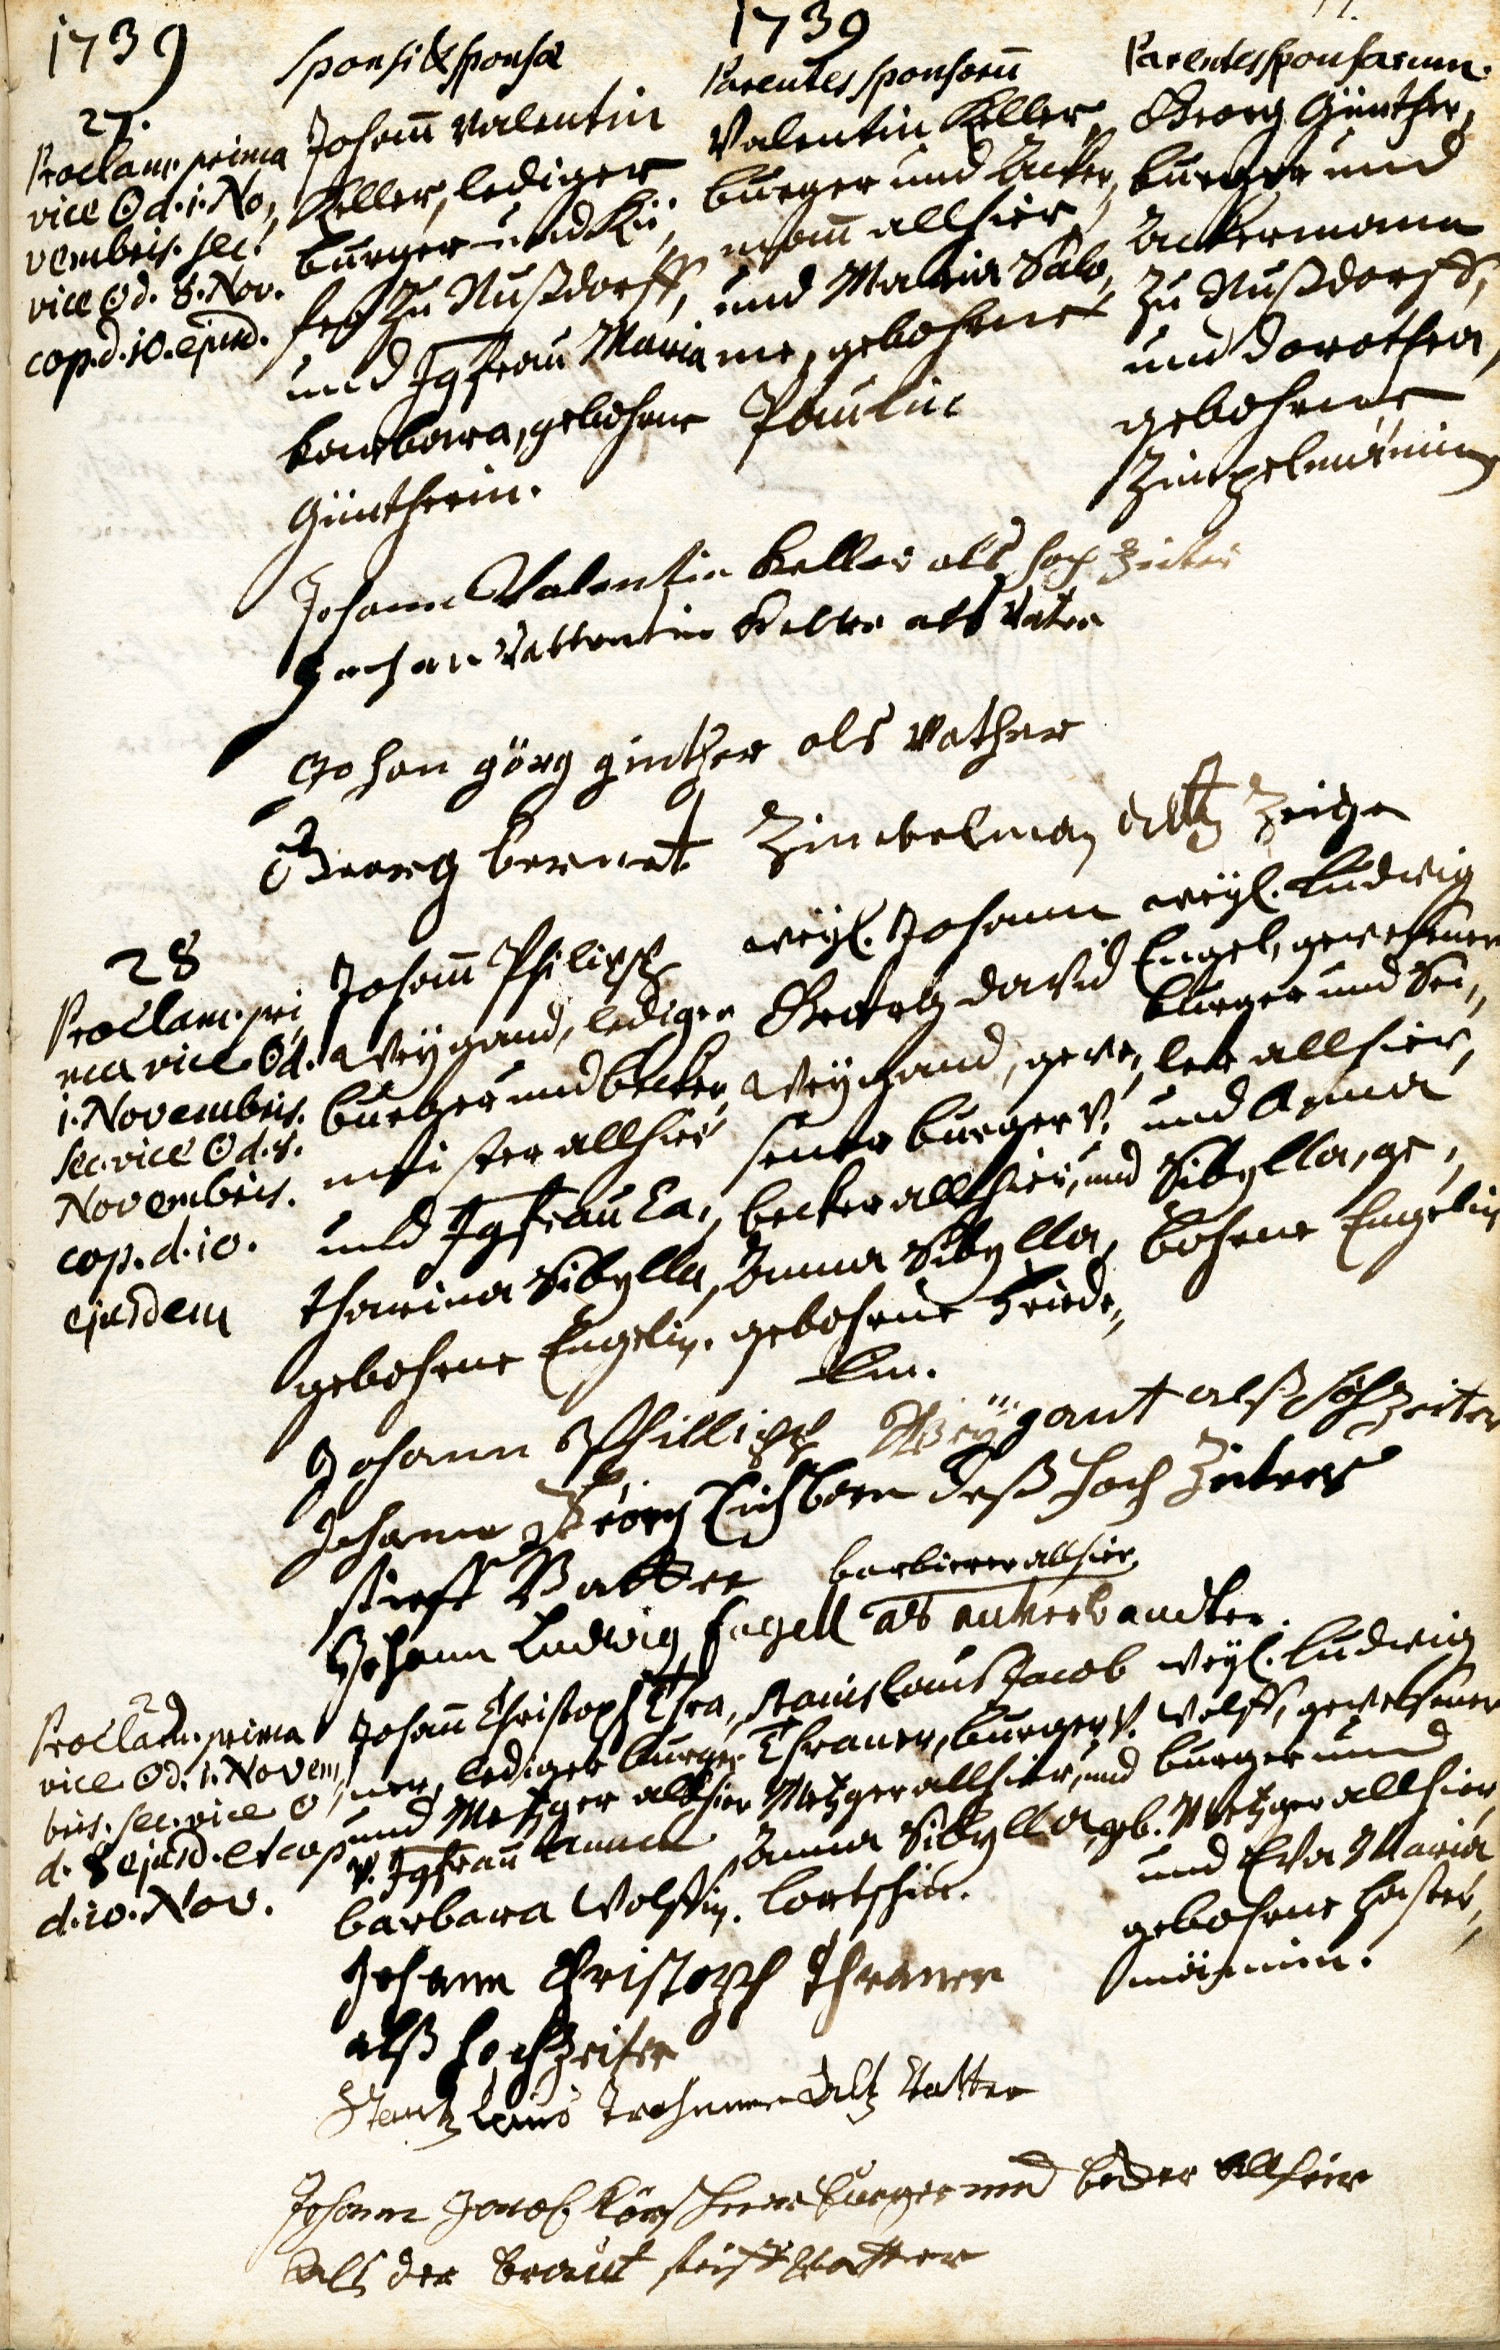 1739
Sponsi & Sponsæ
1739
Parentes Sponsorū
Parentes Sponsarum.
27.
Proclam. prima
vice ☉ d. 1. No,
vembris. sec.
vice ☉ d. 8. Nov.
cop. d. 10. ejusd.
Johañ Valentin
Keller, lediger
burger und Kü,
fer zu Nußdorff,
und Jgfrau Maria
barbara, gebohrne
Güntherin.
Valentin Keller,
burger und Acker,
mañ allhier,
und Maria Salo,
me, gebohrne
Paulin
Georg Günther,
burger und
Ackermann
zu Nußdorff,
und Dorothea,
gebohrne
Zinckelmännin
Johann Valentin Keller als hoch Zeiter
Johan Vallentin Keller als Vater
Johan görg günther als Vather
Georg bernat Zinckelman altz Zeige
28
Proclam. pri
ma vice ☉ d.
1. Novembris.
sec. vice ☉ d. 8.
Novembris.
cop. d. 10.
ejusdem
Johañ Philipp
Weygand, lediger
burger und becker,
meister allhier
und Jgfrau Ca,
tharina Sibylla,
gebohrne Engelin.
weyl. Johann
Georg David
Weygand, gewe,
sener burger v.
becker allhier, und
Anna Sibylla,
gebohrne Friede,,
lin.
weyl. Ludwig
Engel, gewesener
burger und Sei,,
ler allhier,
und Anna
Sibylla, ge,
bohrne Engelin
Johann Phillipp Weygant alß hochzeiter
Johann Georg Eichborn deß hoch Zeiters
stieff Vatter
barbierer allhier
Johann Ludwig Engell als anverwandter.
29
Proclam. prima
vice ☉ d. 1. Novem,
bris. sec. vice ☉
d. 8 ejusd. et cop
d. 10. Nov.
Johañ Christoph Thra,
ner, lediger burger
und Metzger allhier
v. Jgfrau Anna
barbara Wolffin.
Stanislaus Jacob
Thraner, burger v.
Metzger allhier, und
Anna Sibylla, geb.
Lortschin.
weyl. Ludwig
Wolff, gewesener
burger und
Metzger allhier,
und Eva Maria
gebohrne
männin.
Johann Christoph Thraner
alß hochzeiter
Trahner altz Vatter
Johann Jacob burger und beder allhier
als der braut steiff Vatter